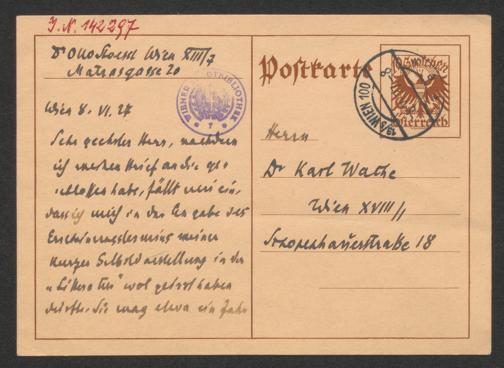 I.N. 142297
Dr Otto Stoessl Wien XIII/7
Matrasgasse 20
Wien 8. VI. 27
Sehr geehrter Herr, nachdem
ich meinen Brief an Sie ge-
schlossen habe, fällt mir ein,
dass ich mich in der Angabe des
Erscheinungstermins meiner
kurzen Selbstdarstellung in der
„Literatur" wol geirrt haben
dürfte. Sie mag etwa ein Jahr
WIENER STADTBIBLIOTHEK
Postkarte
10 Groschen
Österreich
WIEN 100
Herrn
Dr Karl Wache
Wien XVIII/1
Schopenhauerstraße 18